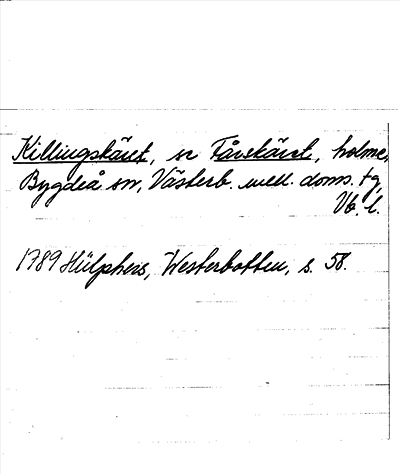 Killingskäret, se Fårskäret, holme,
Bygdeå sn, Västerb. mell. doms. tg,
Vb. l.
1789 Hülphers, Westerbotten, s. 58.